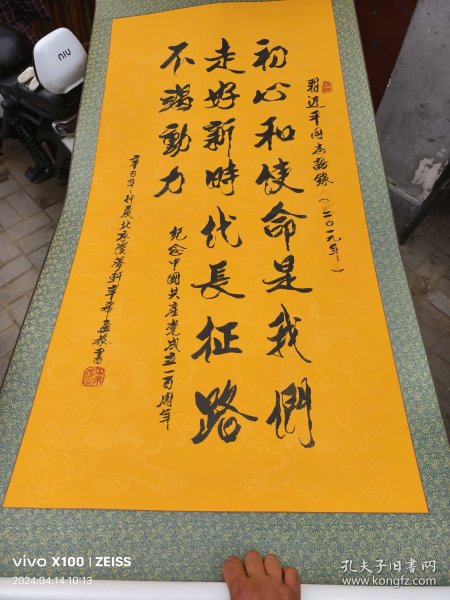 习近平同志語錄（二〇一九年）
初心和使命是我們
走好新時代長征路
不竭動力
紀念中國共産党成立一百周年
辛丑年仲夏北京
niu
vivo X100 | ZEISS
2024.04.14 10:13
孔夫子旧书网
www.kongfz.com